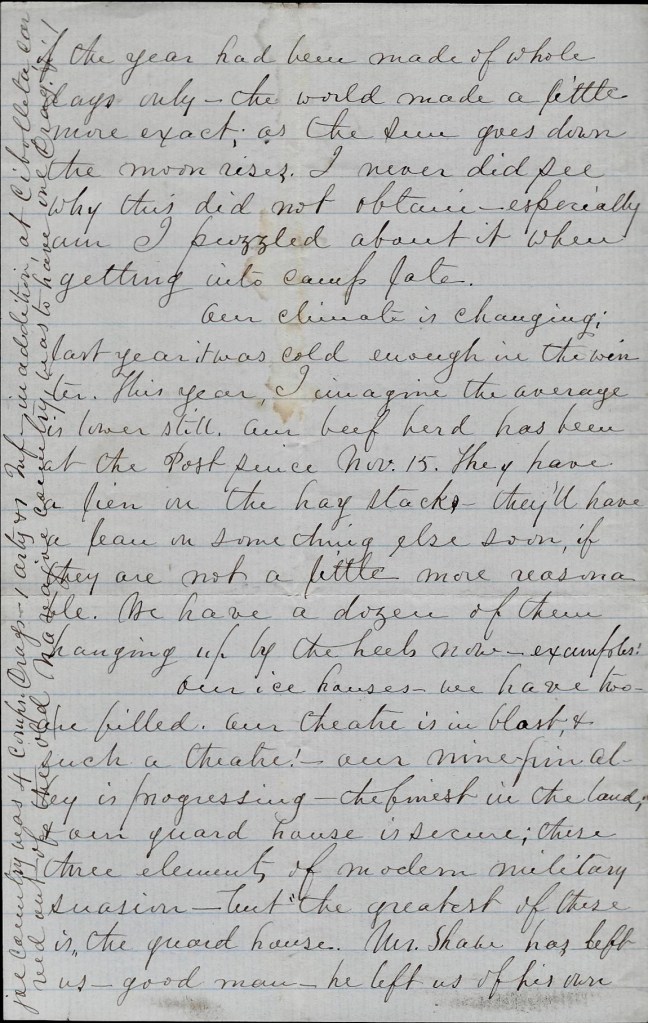 if the year had been made of whole
days only – the world made a little
more exact; as the sun goes down
the moon rises. I never did see
why this did not obtain – especially
am I puzzled about it when
getting into camp late.
Our climate is changing;
last year it was cold enough in the win
ter. This year, I imagine the average
is lower still. Our beef herd has been
at the Post since Nov. 15. They have
a lien on the hay stacks – they'll have
a lean on something else soon, if
they are not a little more reasona
ble. We have a dozen of them
hanging up by the heels now – examples!
Our ice houses – we have two –
are filled. Our theatre is in blast, &
such a theatre! – our nine-pin al-
ley is progressing – the finest in the land;
& our guard house is secure; these
three elements of modern military
suasion – but "the greatest of these
is" the guard house. Mr. Shaw has left
us – good man – he left us of his own
country was 4 Comp. Drags – 1 arty & 1 Inf. in addition, at Cibolleta car
ved out of the old Navajoe country, was to have one Drag.